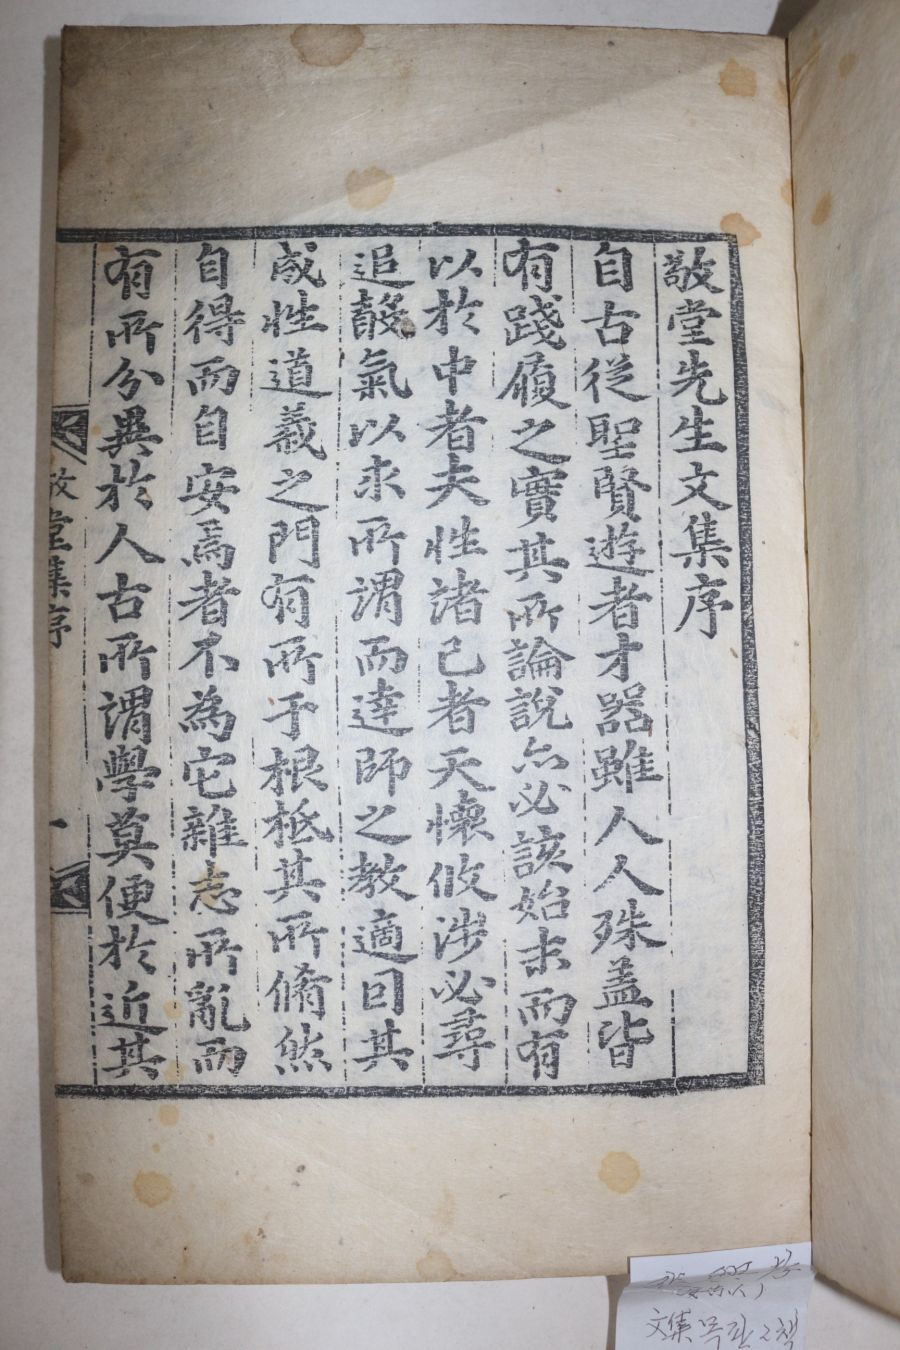 敬堂先生文集序
自古從聖賢遊者才器雖人人殊盖皆
有踐履之實其所論說亦必該始末而有
以於中者夫性諸己者天懷攸涉必尋
追馨氣以求所謂而達師之教適回其
成性道義之門有所于根柢其所脩然
自得而自安焉者不為它雜志所亂而
有所分異於人古所謂學莫便於近其
敬堂集序
一
文集 목판 2책